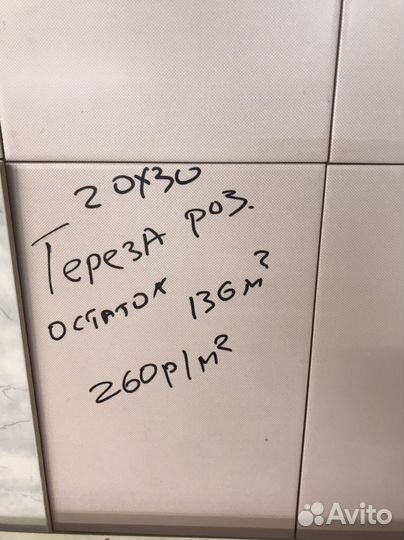 20х30
Тереза роз.
остаток 136м²
260р/м²
Avito